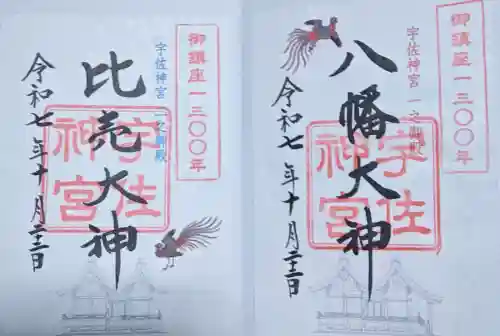 御鎮座一三〇〇年
宇佐神宮 一之御殿
八幡大神
宇佐神宮
令和七年十月二十三日
御鎮座一三〇〇年
宇佐神宮 二之御殿
比売大神
宇佐神宮
令和七年十月二十三日